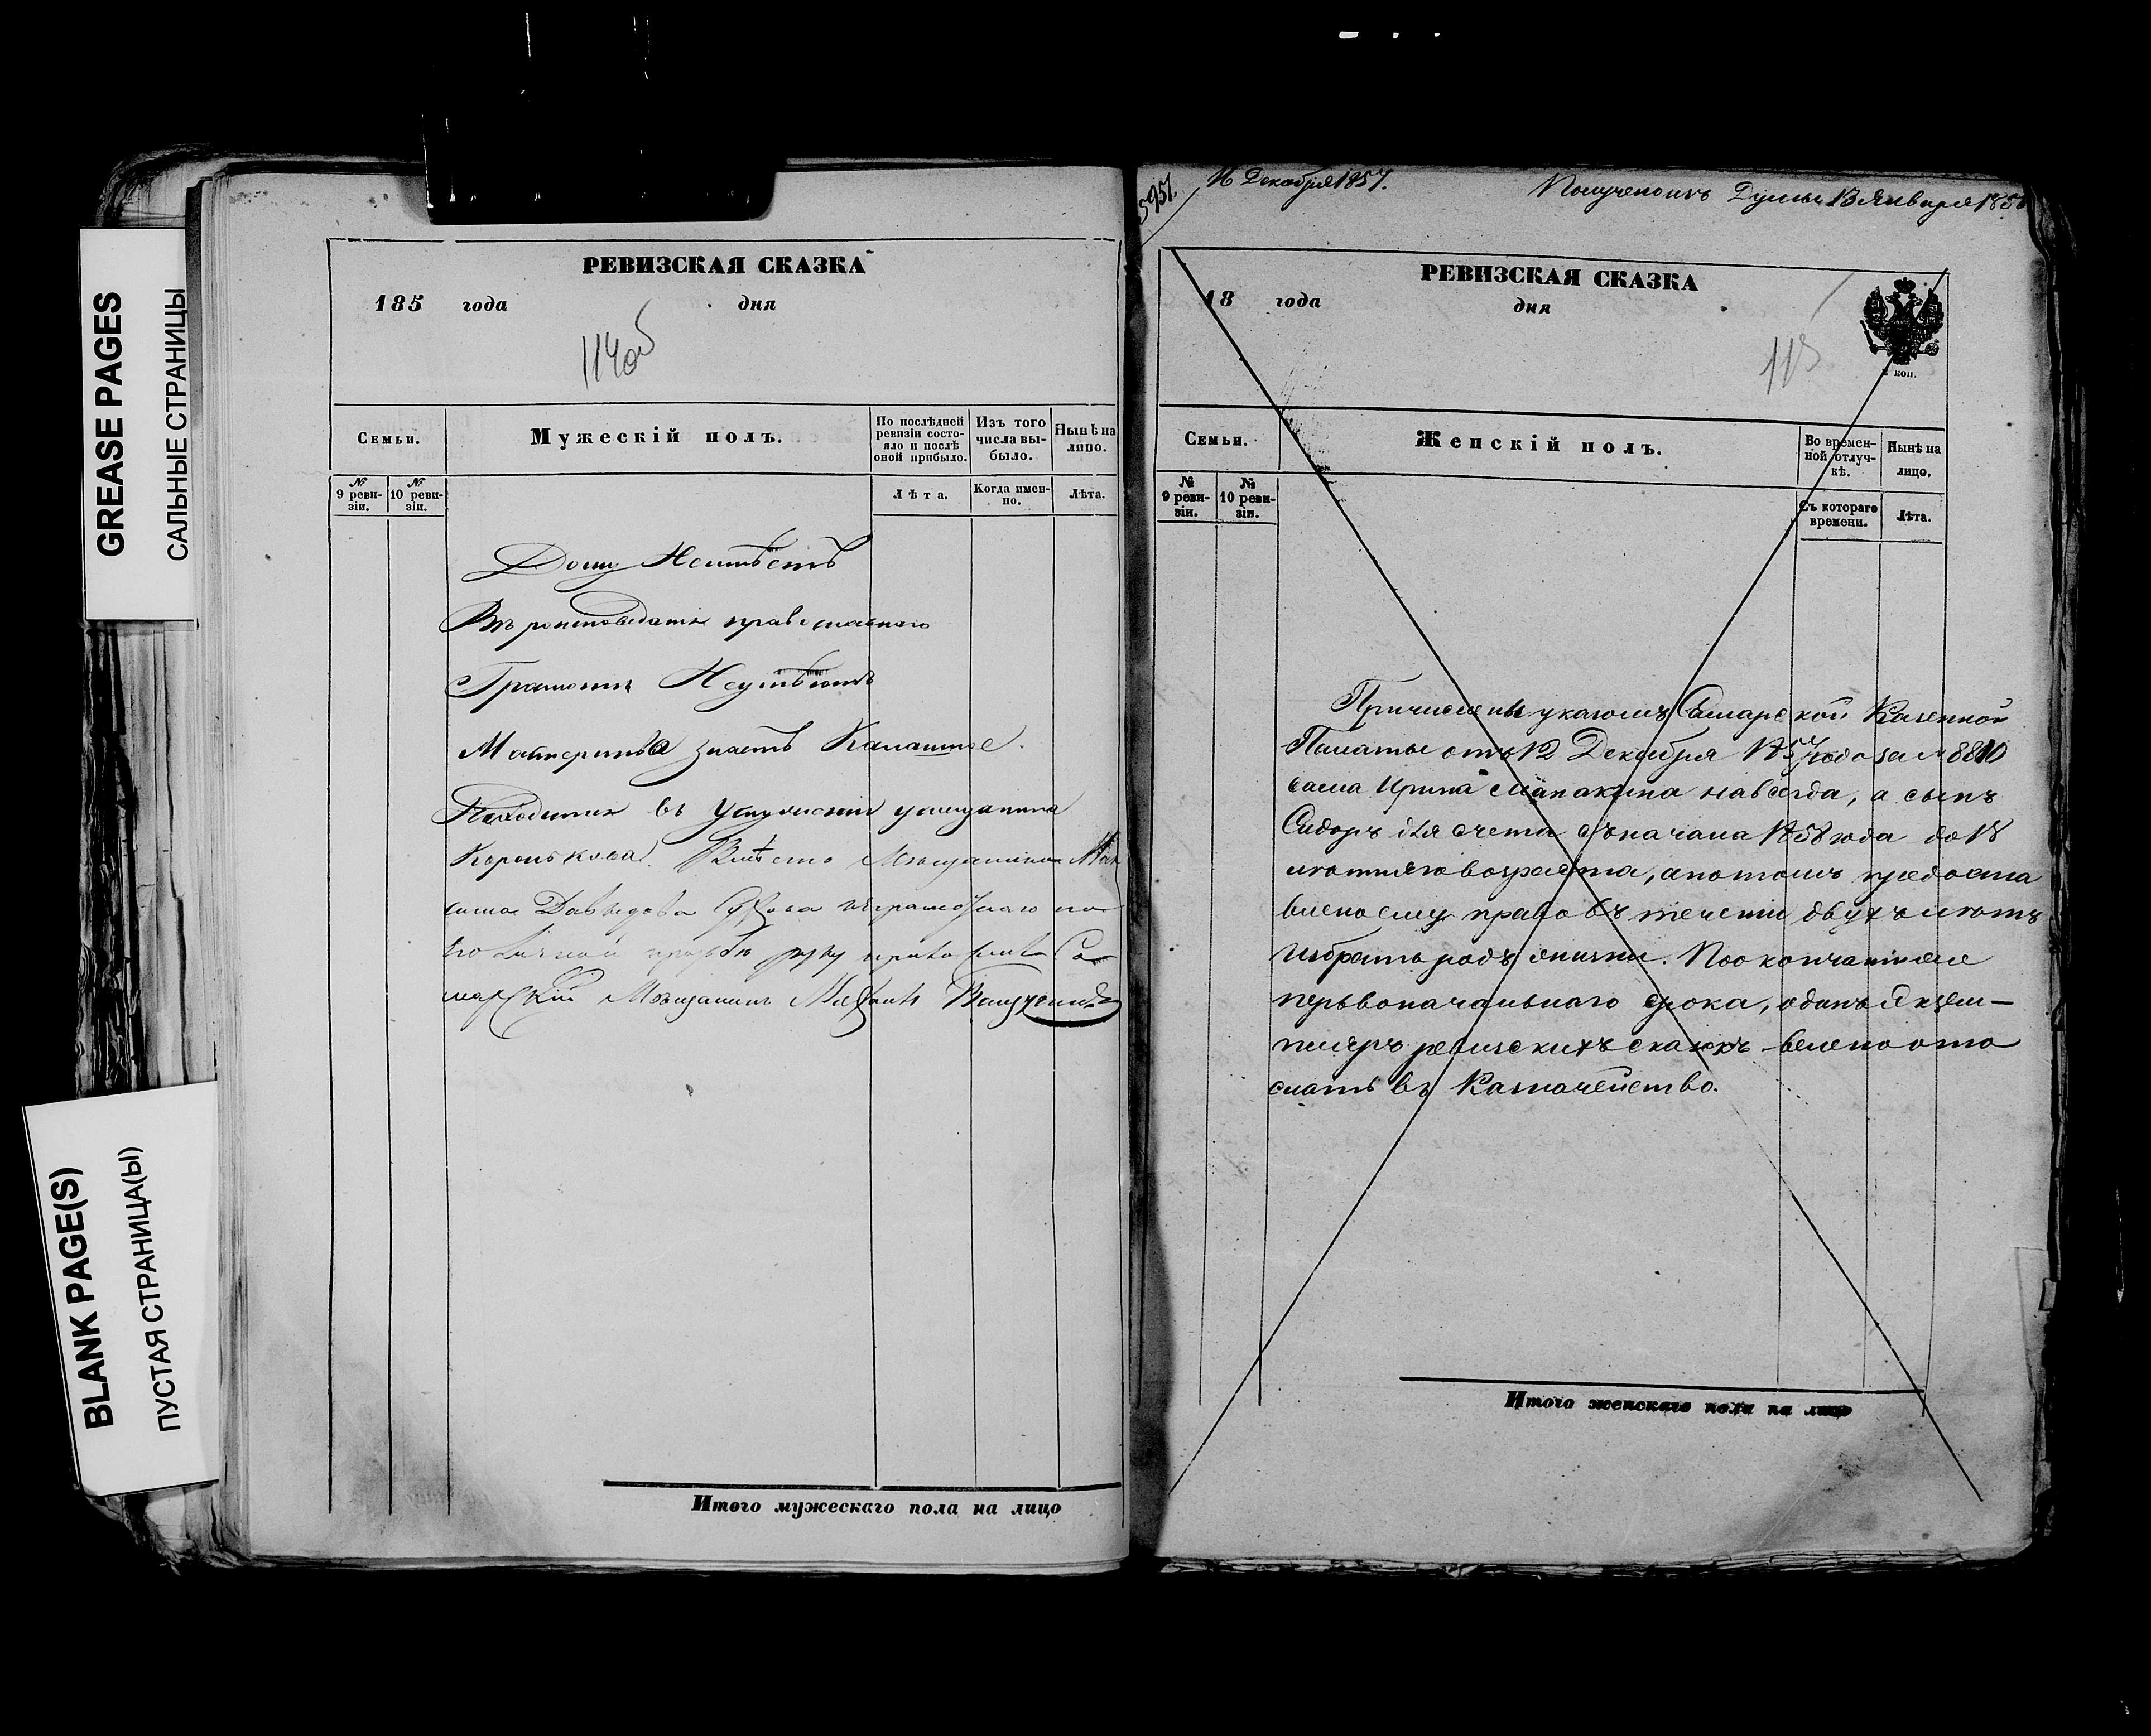 GREASE PAGES
САЛЬНЫЕ СТРАНИЦЫ
BLANK PAGE(S)
ПУСТАЯ СТРАНИЦА(Ы)
РЕВИЗСКАЯ СКАЗКА
185 года дня
114об
Семьи.
Мужескій полъ.
По послѣдней ревизіи состояло и послѣ оной прибыло.
Изъ того числа выбыло.
Нынѣ на лицо.
№ 9 ревизіи.
№ 10 ревизіи.
Лѣта.
Когда именно.
Лѣта.
Дому Неимѣетъ
Вѣроисповеданія православнаго
Грамотѣ Неумѣетъ
Мастерство знаетъ Калашное.
Находится въ Услуженіи умещанина
Королькова. Вмѣсто Мѣщанина
Давыдова неграмотнаго по
его личной прозбѣ руку приложилъ Са
марскій Мѣщанинъ
Итого мужескаго пола на лицо
5951.
16 Декабря 1857.
Полученъ изъ Думы 13 Января 185
РЕВИЗСКАЯ СКАЗКА
18 года дня
115
коп.
Семьи.
Женскій полъ.
Во временной отлучкѣ.
Нынѣ на лицо.
№ 9 ревизіи.
№ 10 ревизіи.
Съ котораго времени.
Лѣта.
Причислены указомъ Самарской Казенной
Палаты отъ 12 Декабря 1857 года за № 8810
сама Ирина Манакина навсегда, а сынъ
Сидоръ для счета съ начала 1858 года до 18
лѣтняго возраста, а потомъ предоста
влено ему право въ теченіи двухъ лѣтъ
избрать родъ жизни. По окончаніи
первоначальнаго срока, одинъ экзем-
пляръ ревизскихъ сказокъ велено ото
слать въ Казначейство.
Итого женскаго пола на лицо